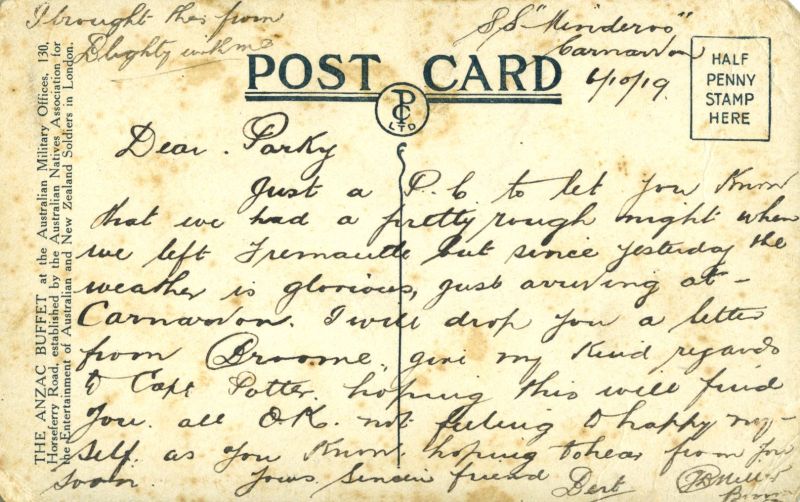 I brought this from
Blighty with me
S/S "Minderoo"
Carnarvon
6/10/19.
POST CARD
PC
LTD
HALF
PENNY
STAMP
HERE
THE ANZAC BUFFET at the Australian Military Offices, 130,
Horseferry Road, established by the Australian Natives Association for
the Entertainment of Australian and New Zealand Soldiers in London.
Dear Parky
Just a P.C to let you Know
that we had a pretty rough night when
we left Fremantle but since yesterday the
weather is glorious, just arriving at -
Carnarvon. I will drop you a letter
from "Broome" give my Kind regards
to Capt Potter. hoping this will find
you all OK. not feeling to happy my-
self as you Know. hoping to hear from you
soon. Yours Sincere friend Bert